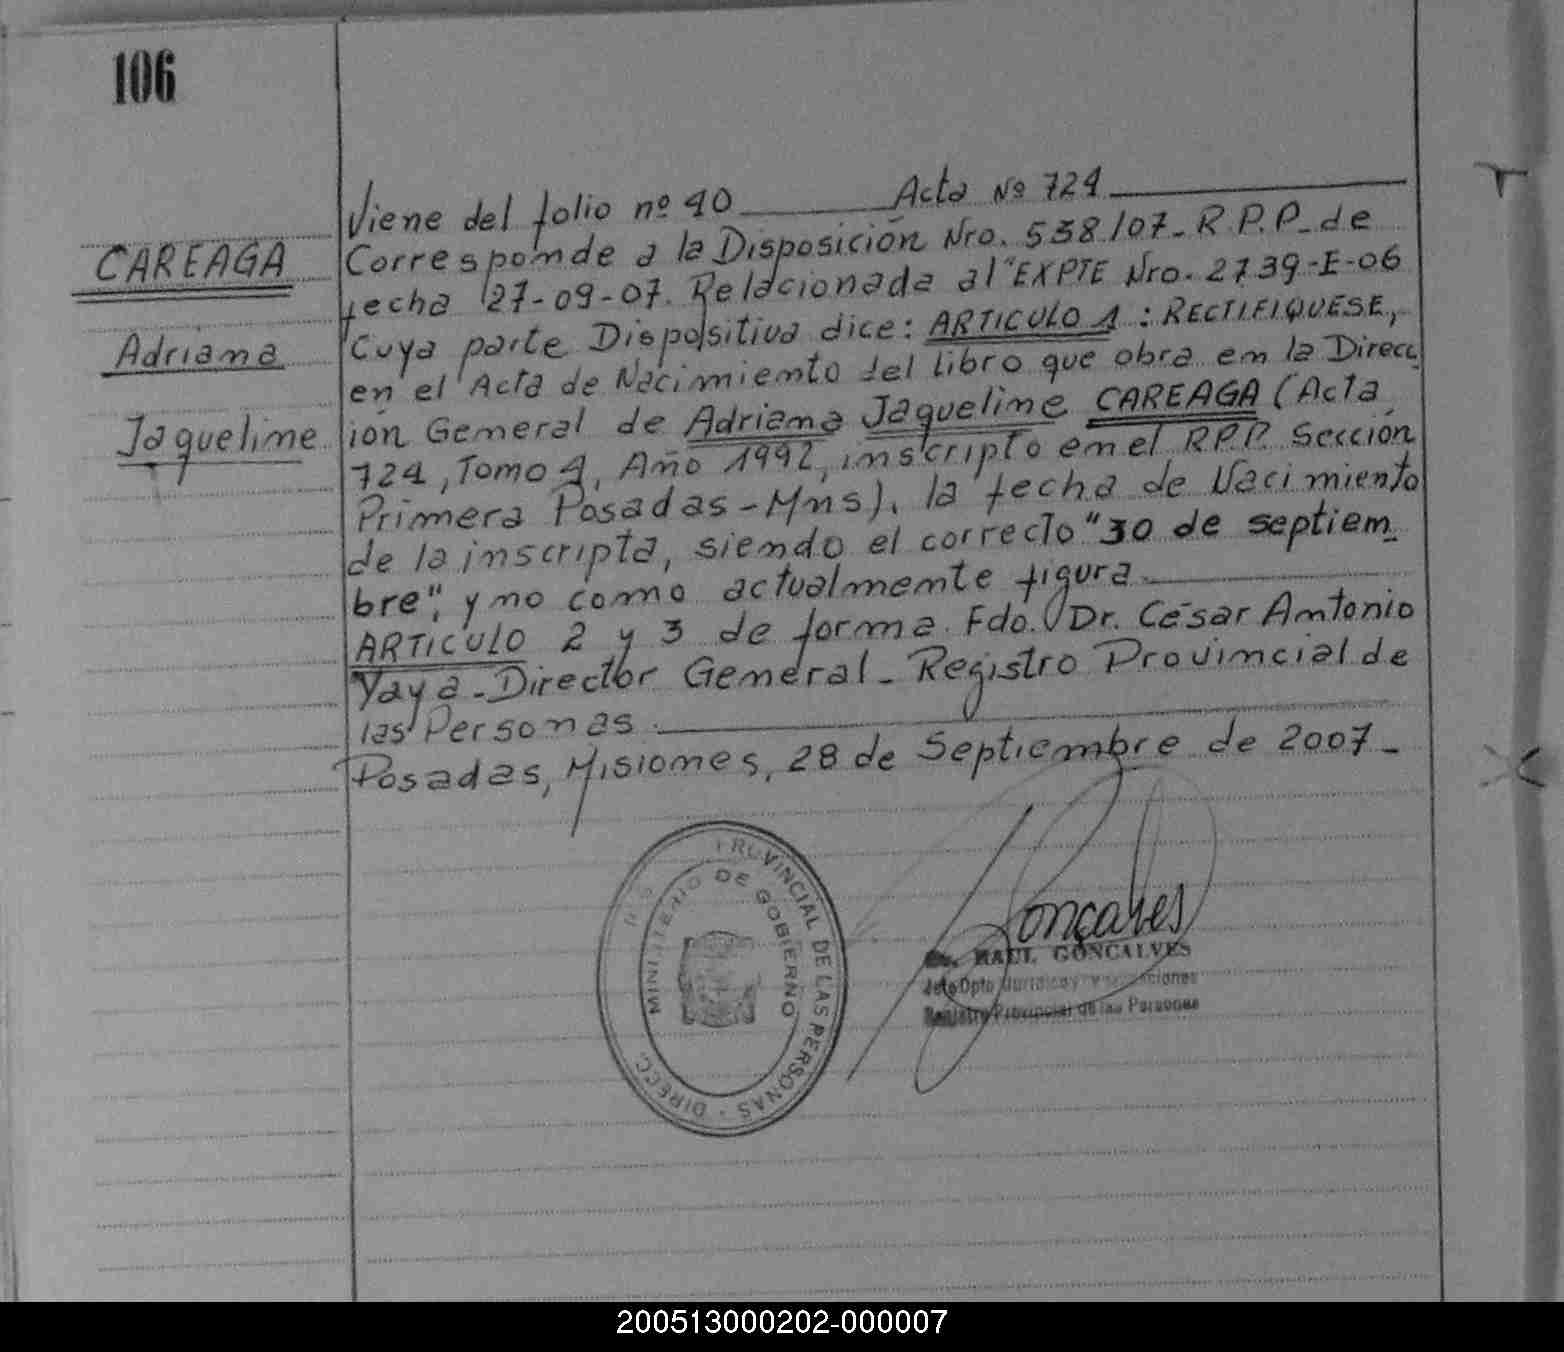 106
CAREAGA
Adriana
Jaqueline
Viene del folio nº 40 Acta Nº 724
Corresponde a la Disposición Nro. 538/07- R.P.P- de
fecha 27-09-07. Relacionada al "EXPTE Nro. 2739-E-06
Cuya parte Dispositiva dice: ARTICULO 1 : RECTIFIQUESE,
en el Acta de Nacimiento del libro que obra en la Direcc
ión General de Adriana Jaqueline CAREAGA (Acta
724, Tomo 4, Año 1992, inscripto en el R.P.P. Sección
Primera Posadas-Mns), la fecha de Nacimiento
de la inscripta, siendo el correcto "30 de septiem_
bre", y no como actualmente figura.
ARTICULO 2 y 3 de forma. Fdo. Dr. César Antonio
Yaya-Director General- Registro Provincial de
las Personas.
Posadas, Misiones, 28 de Septiembre de 2007-
PROVINCIAL DE LAS PERSONAS - DIRECC.
MINISTERIO DE GOBIERNO
Goncalves
RAUL GONCALVES
Jefe Dpto
Registro Provincial de las Personas
200513000202-000007